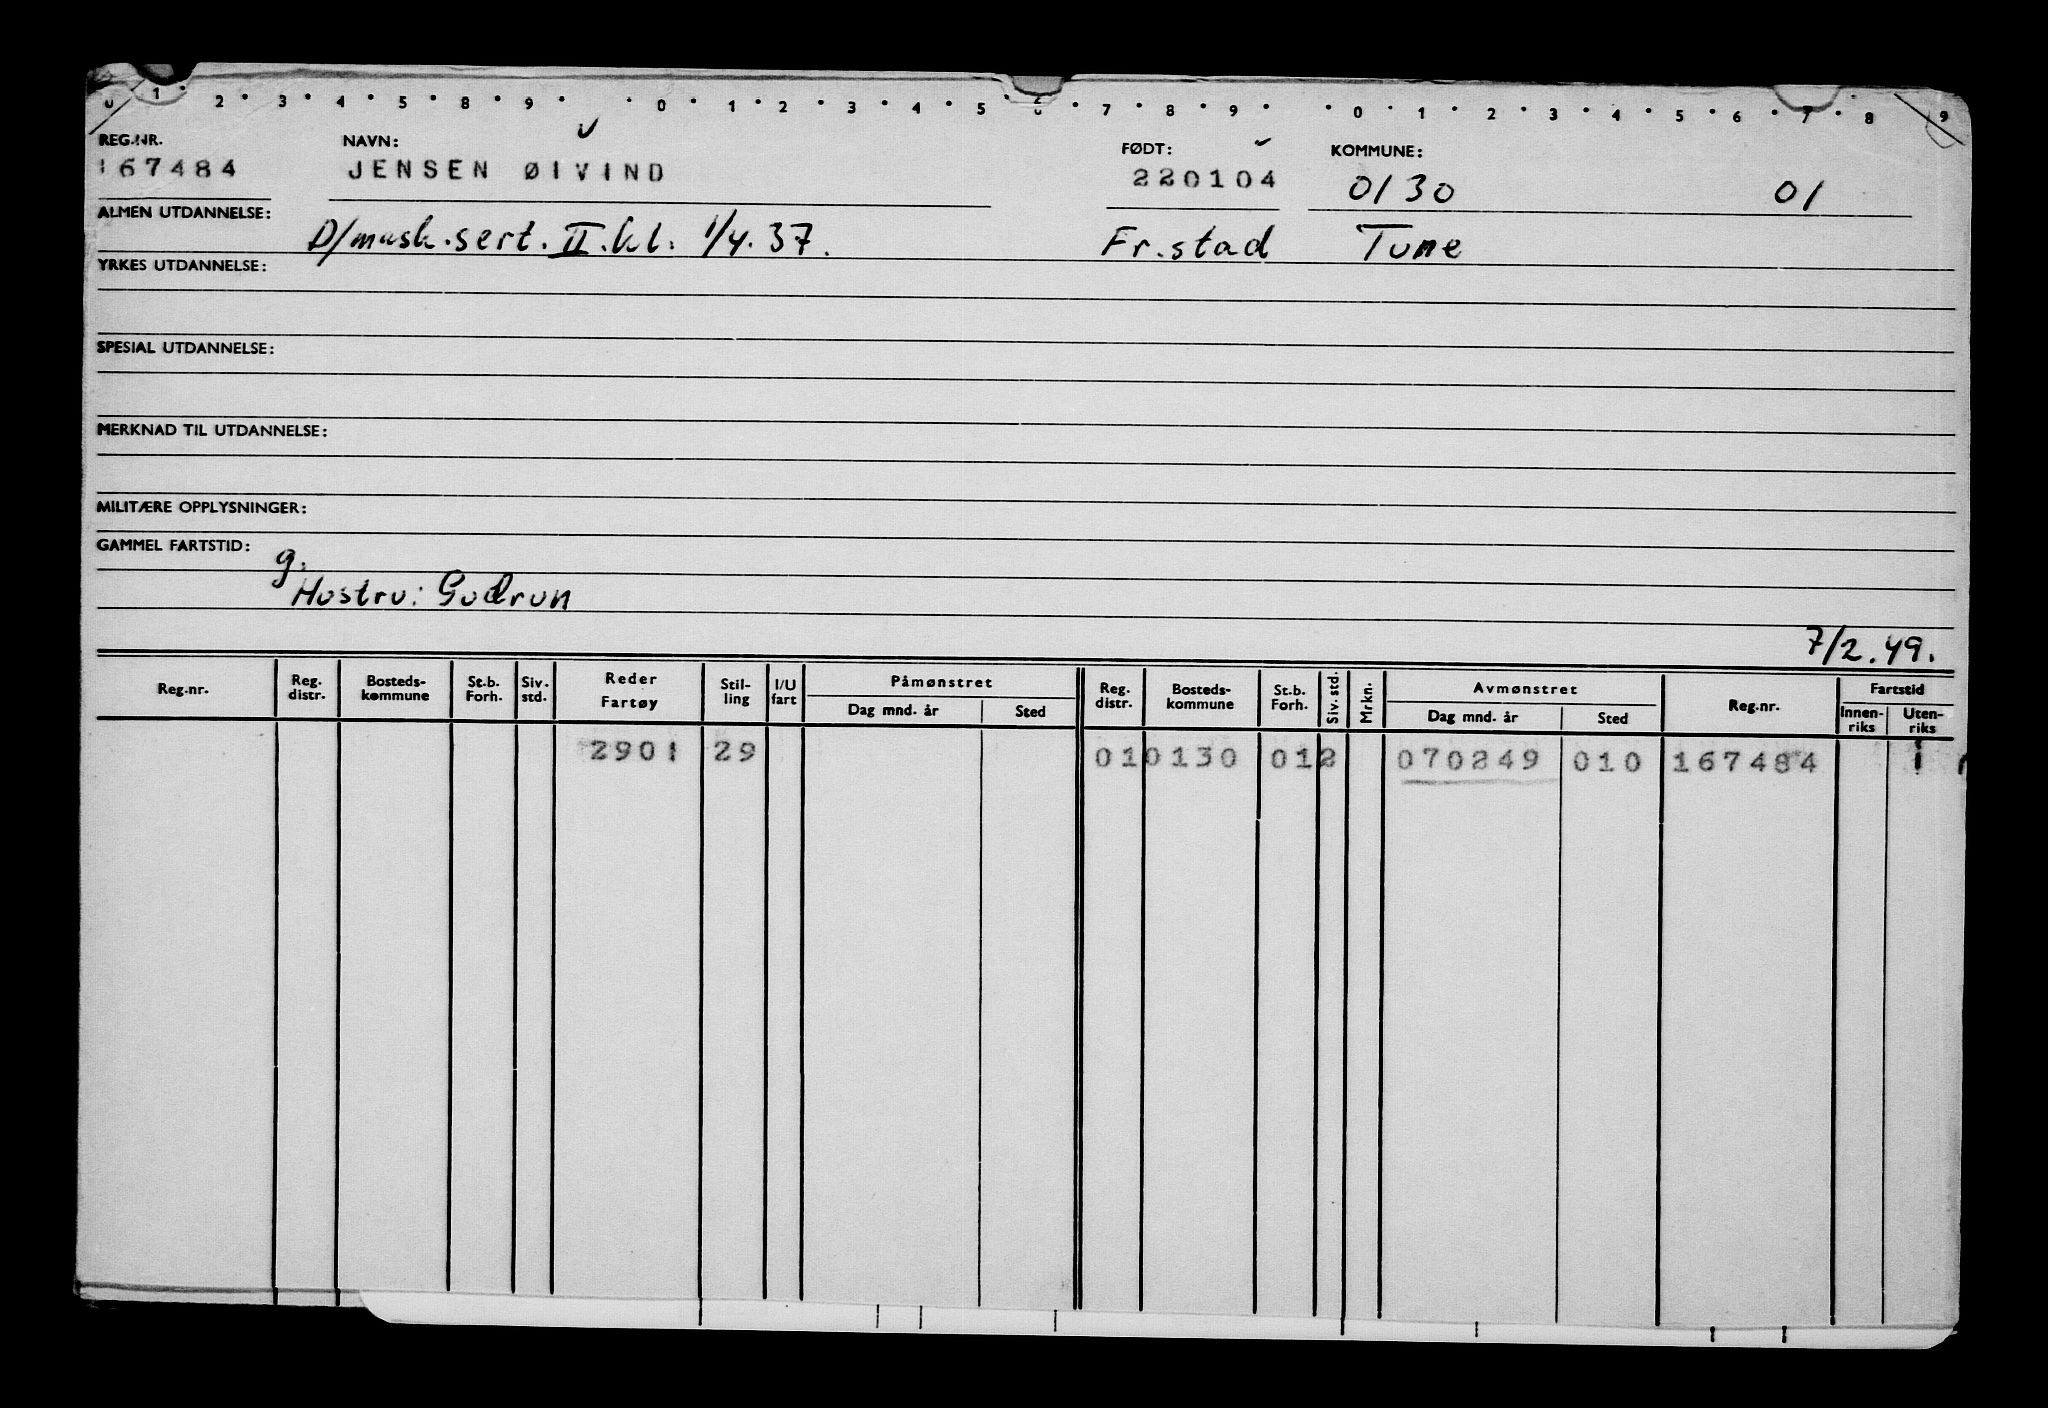 0 1 2 3 4 5 8 9 0 1 2 3 4 5 6 7 8 9 0 1 2 3 4 5 6 7 8 9
REG.NR. NAVN: FØDT: KOMMUNE:
167484 JENSEN ØIVIND 220104 0130 01
ALMEN UTDANNELSE: D/mask.sert. II.kl. 1/4.37. Fr.stad Tune
YRKES UTDANNELSE:
SPESIAL UTDANNELSE:
MERKNAD TIL UTDANNELSE:
MILITÆRE OPPLYSNINGER:
GAMMEL FARTSTID:
g.
Hustru: Gudrun
7/2.49.
Reg.nr. Reg. distr. Bosteds-kommune St.b. Forh. Siv. std. Reder Fartøy Stil-ling I/U fart Påmønstret Dag mnd. år Sted Reg. distr. Bosteds-kommune St.b. Forh. Siv. std. Mrkn. Avmønstret Dag mnd. år Sted Reg.nr. Fartstid Innen-riks Uten-riks
2901 29 010130 012 070249 010 167484 1